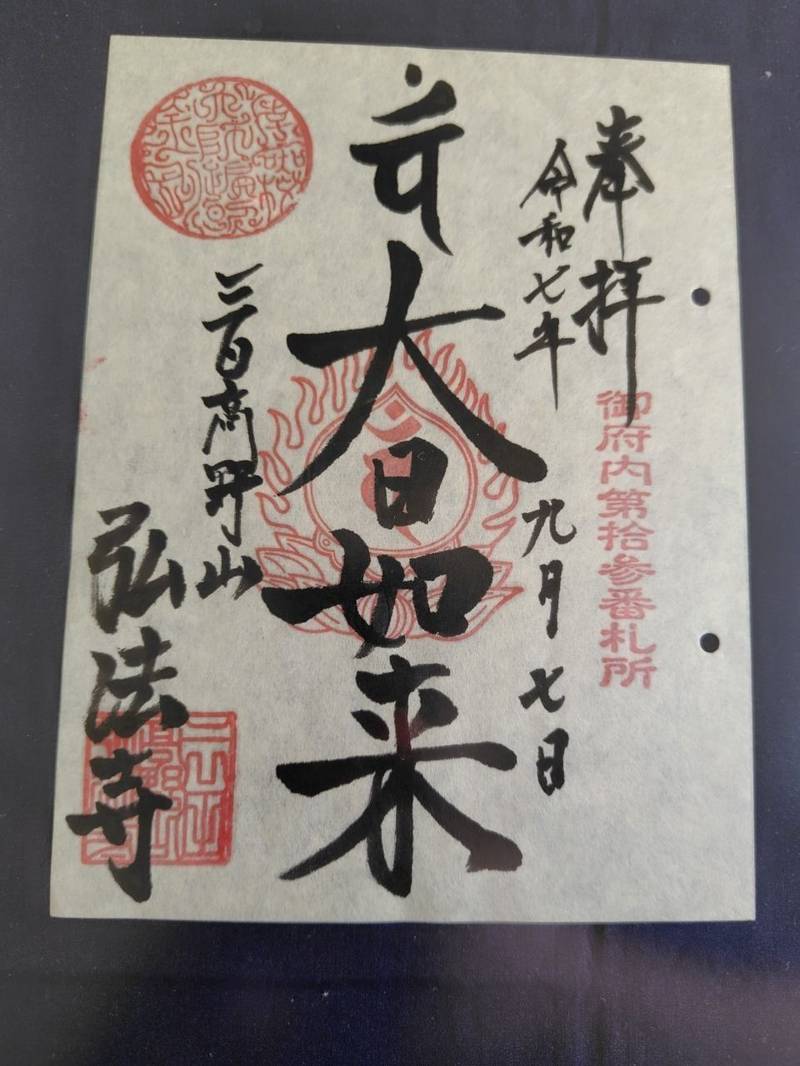 奉拝
御府内第拾参番札所
令和七年九月七日
大日如来
三田高野山
弘法寺